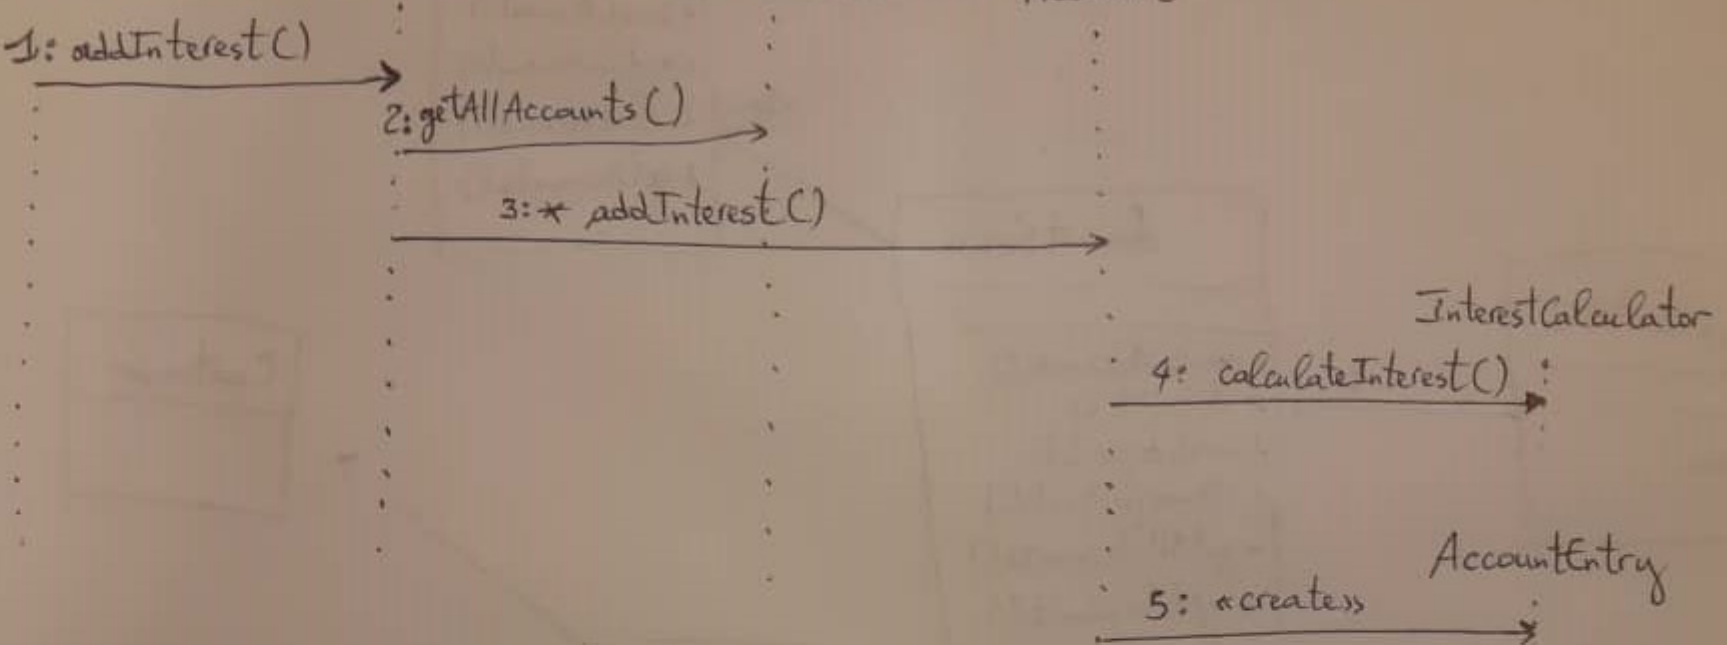 1: addInterest()
2: getAllAccounts()
3: * addInterest()
InterestCalculator
4: calculateInterest()
AccountEntry
5: «create»